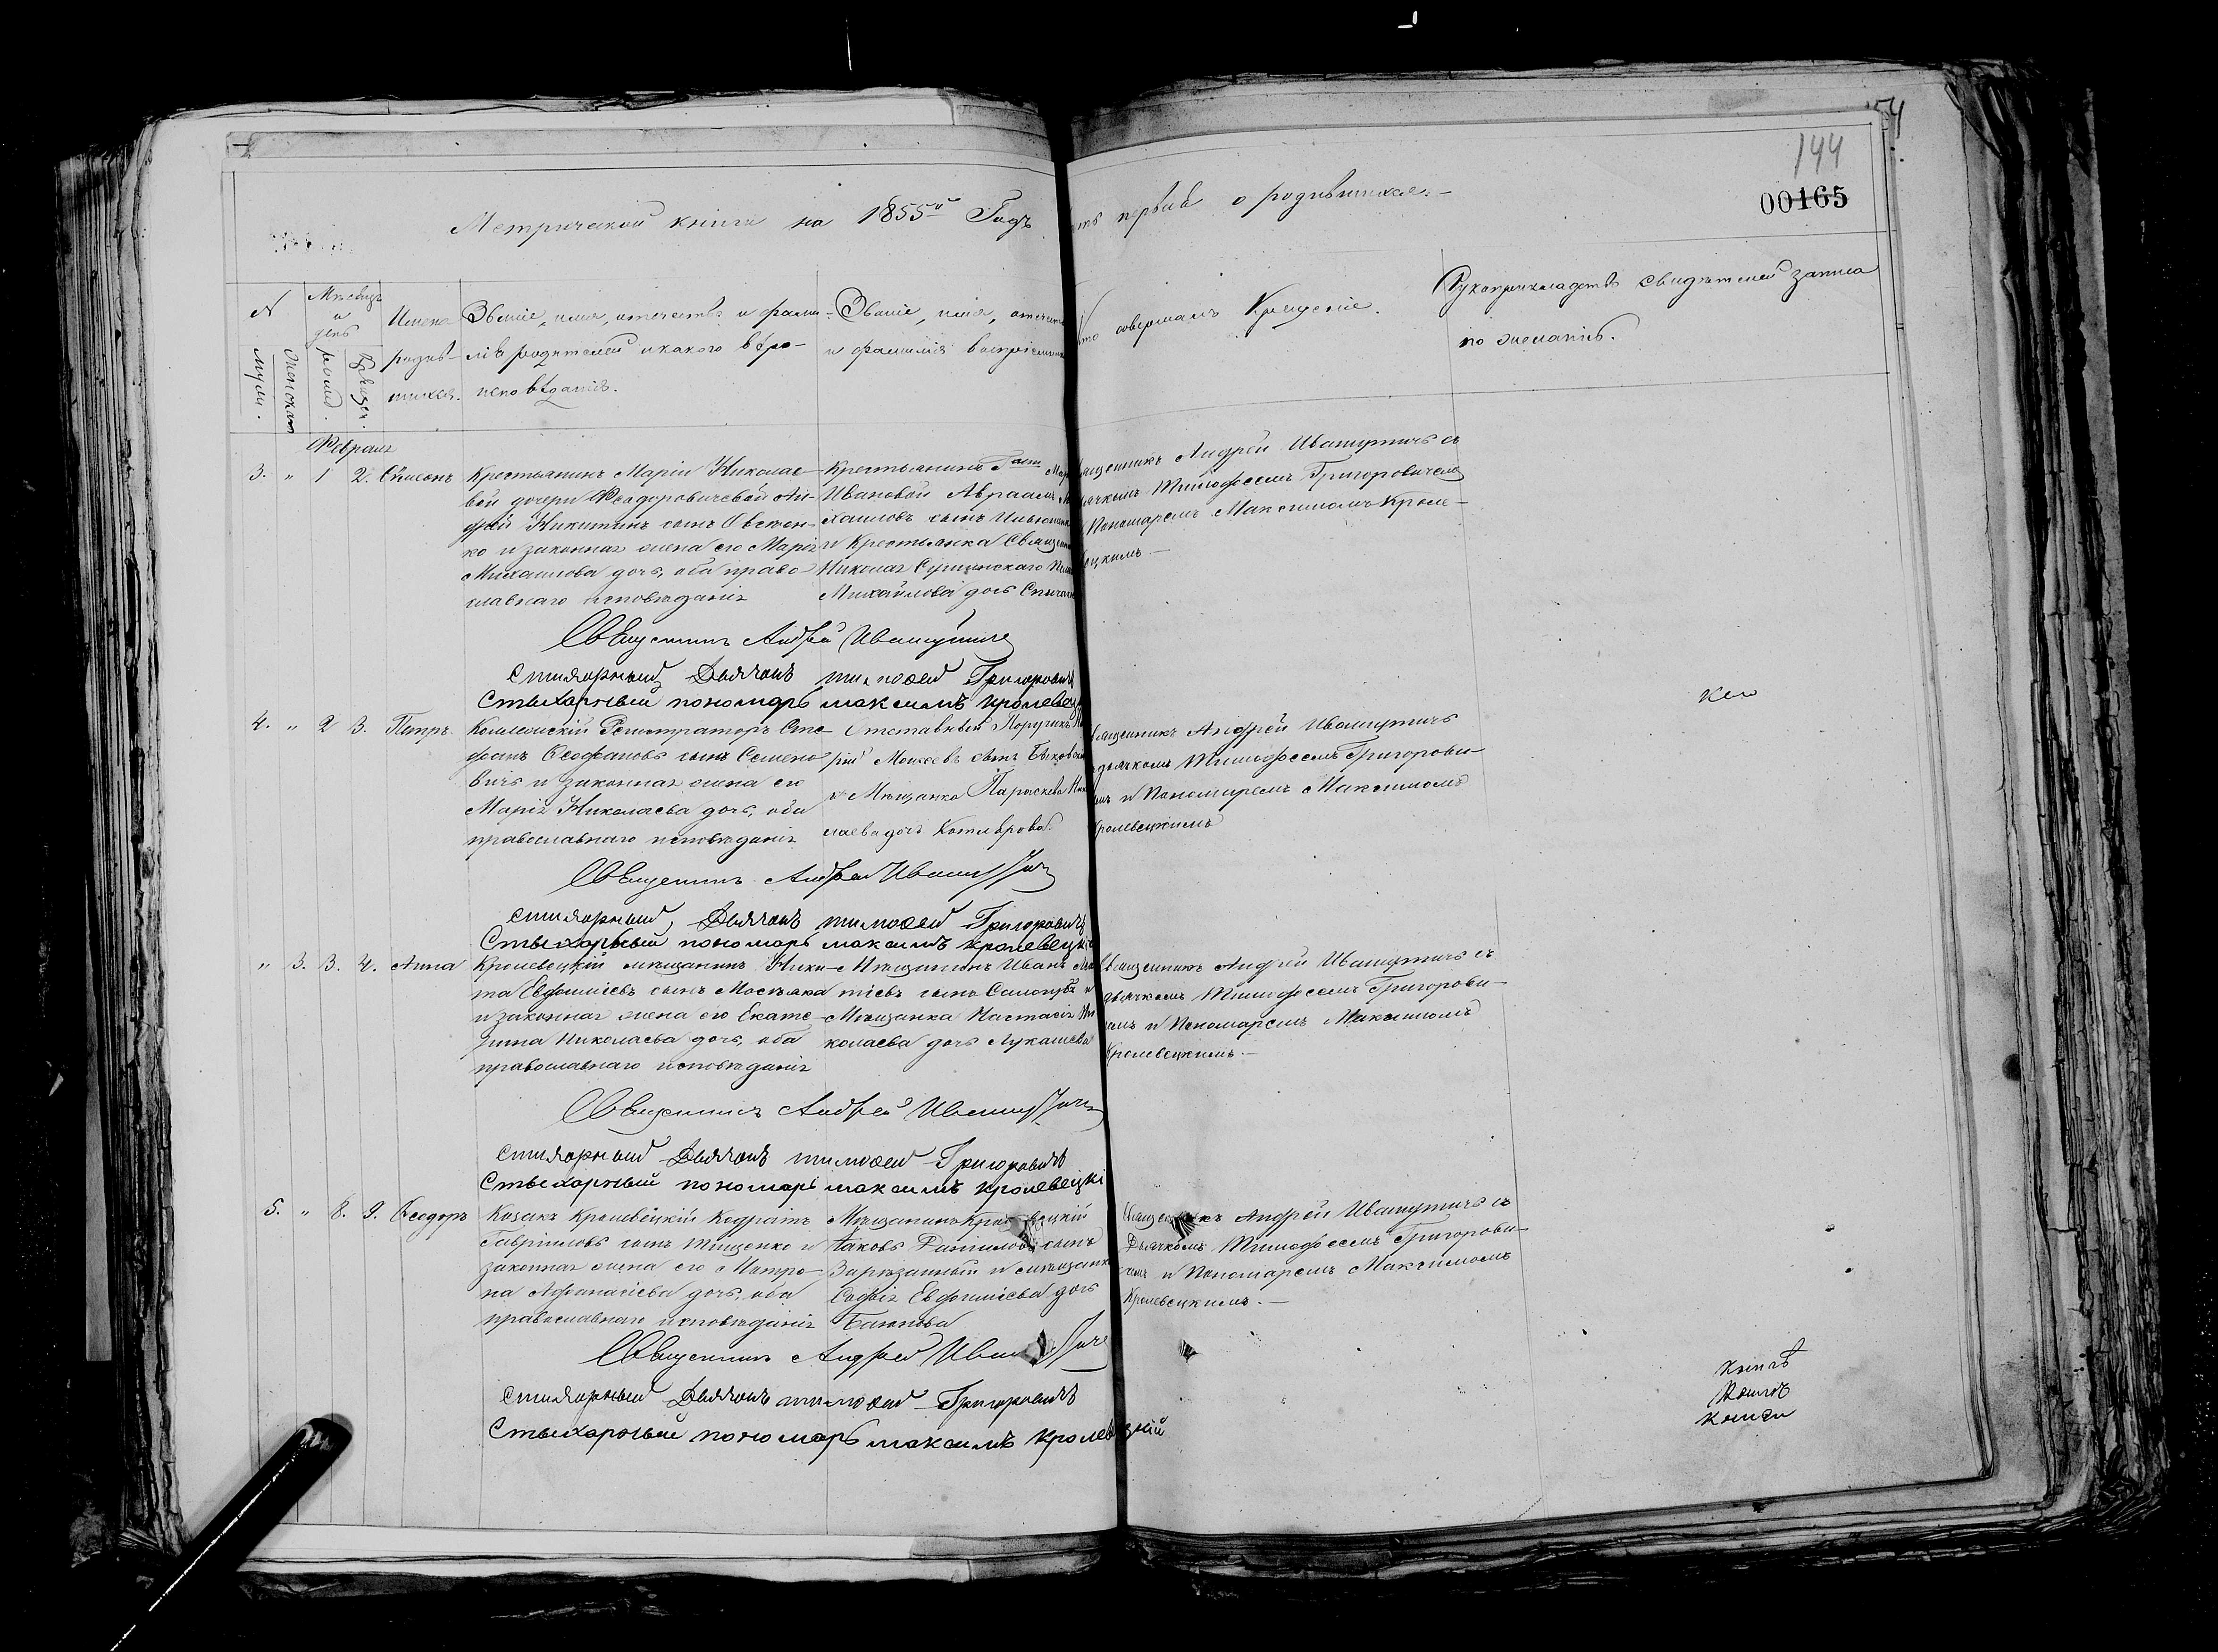 144
00165
Метрической книги на 1855й Годъ
первая о родившихся.
№
Мѣсяцъ и день
Имена родившихся.
Званіе, имя, отчество и фамилія родителей и какого вѣроисповѣданія.
Званіе, имя, отчество и фамилія воспріемниковъ
совершалъ Крещеніе.
Рукоприкладство свидѣтелей записи
по желанію.
Мужес.
Женскаго
рожд.
Крещен.
Февраля
3. " 1 2. Симеонъ
Крестьянинъ Маріи Николае-
вой дочери Феодоровичевой
Никитинъ сынъ Овсіен-
ко и законная жена его Марія
Михаилова дочь, оба право-
славнаго исповѣданія
Крестьянинъ
Ивановой Авраамъ
хаиловъ сынъ
и Крестьянка
Николая
Михайлова дочь
Священникъ Андрей Ивашутичь съ
дьячкомъ Тимофеемъ Григоровичемъ
и Пономаремъ Максимомъ Кроле-
вецкимъ.—
Священникъ Андрей Ивашутичь
Стихарный Дьячокъ тимофей Григоровичъ
Стыхарный пономарь максимъ кролевецкій
4. " 2 3. Петръ.
Коллежскій Регистраторъ Сте-
фанъ Феофановъ сынъ Семено-
вичъ и законная жена его
Марія Николаева дочь, оба
православнаго исповѣданія
Отставный Поручикъ
рій Моисеевъ сынъ Быковскій
и Мѣщанка Параскева Ни
лаева дочь Котлярова.
Священникъ Андрей Ивашутичь
дьячкомъ Тимофеемъ Григорови-
чемъ и Пономаремъ Максимомъ
Кролевецкимъ
Священникъ Андрей Ивашутичь
стихарный, Дьячокъ тимофей Григоровичъ
Стыхарный пономарь максимъ кролевецкій
" 3. 3. 4. Анна
Кролевецкій мѣщанинъ Ники-
та Евфиміевъ сынъ Москалка
и законная жена его Екате-
рина Николаева дочь, оба
православнаго исповѣданія
Мѣщанинъ Иванъ
тіевъ сынъ и
Мѣщанка Настасія Ни
колаева дочь Лукашева
Священникъ Андрей Ивашутичь съ
дьячкомъ Тимофеемъ Григорови-
чемъ и Пономаремъ Максимомъ
Кролевецкимъ.—
Священникъ Андрей Ивашутичь
стихарный Дьячокъ тимофей Григоровичъ
Стыхарный пономарь максимъ кролевецкі
5. " 8. 9. Феодоръ
Козакъ Кролевецкій Кодратъ
Гавріиловъ сынъ Тищенко и
законная жена его Матро-
на Афанасіева дочь, оба
православнаго исповѣданія
Мѣщанинъ Кролевецкій
Іаковъ Даниловъ сынъ
Зарѣзанный и мѣщанка
Софія Евфиміева дочь
Священникъ Андрей Ивашутичь съ
Дьячкомъ Тимофеемъ Григорови-
чемъ и Пономаремъ Максимомъ
Кролевецкимъ.—
Священникъ Андрей Ивашутичь
стихарный Дьячокъ тимофей Григоровичъ
Стыхарный пономарь максимъ кролевецкій